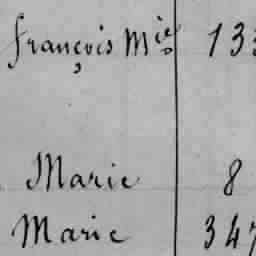 françois Miel 133
Marie 8
Marie 347